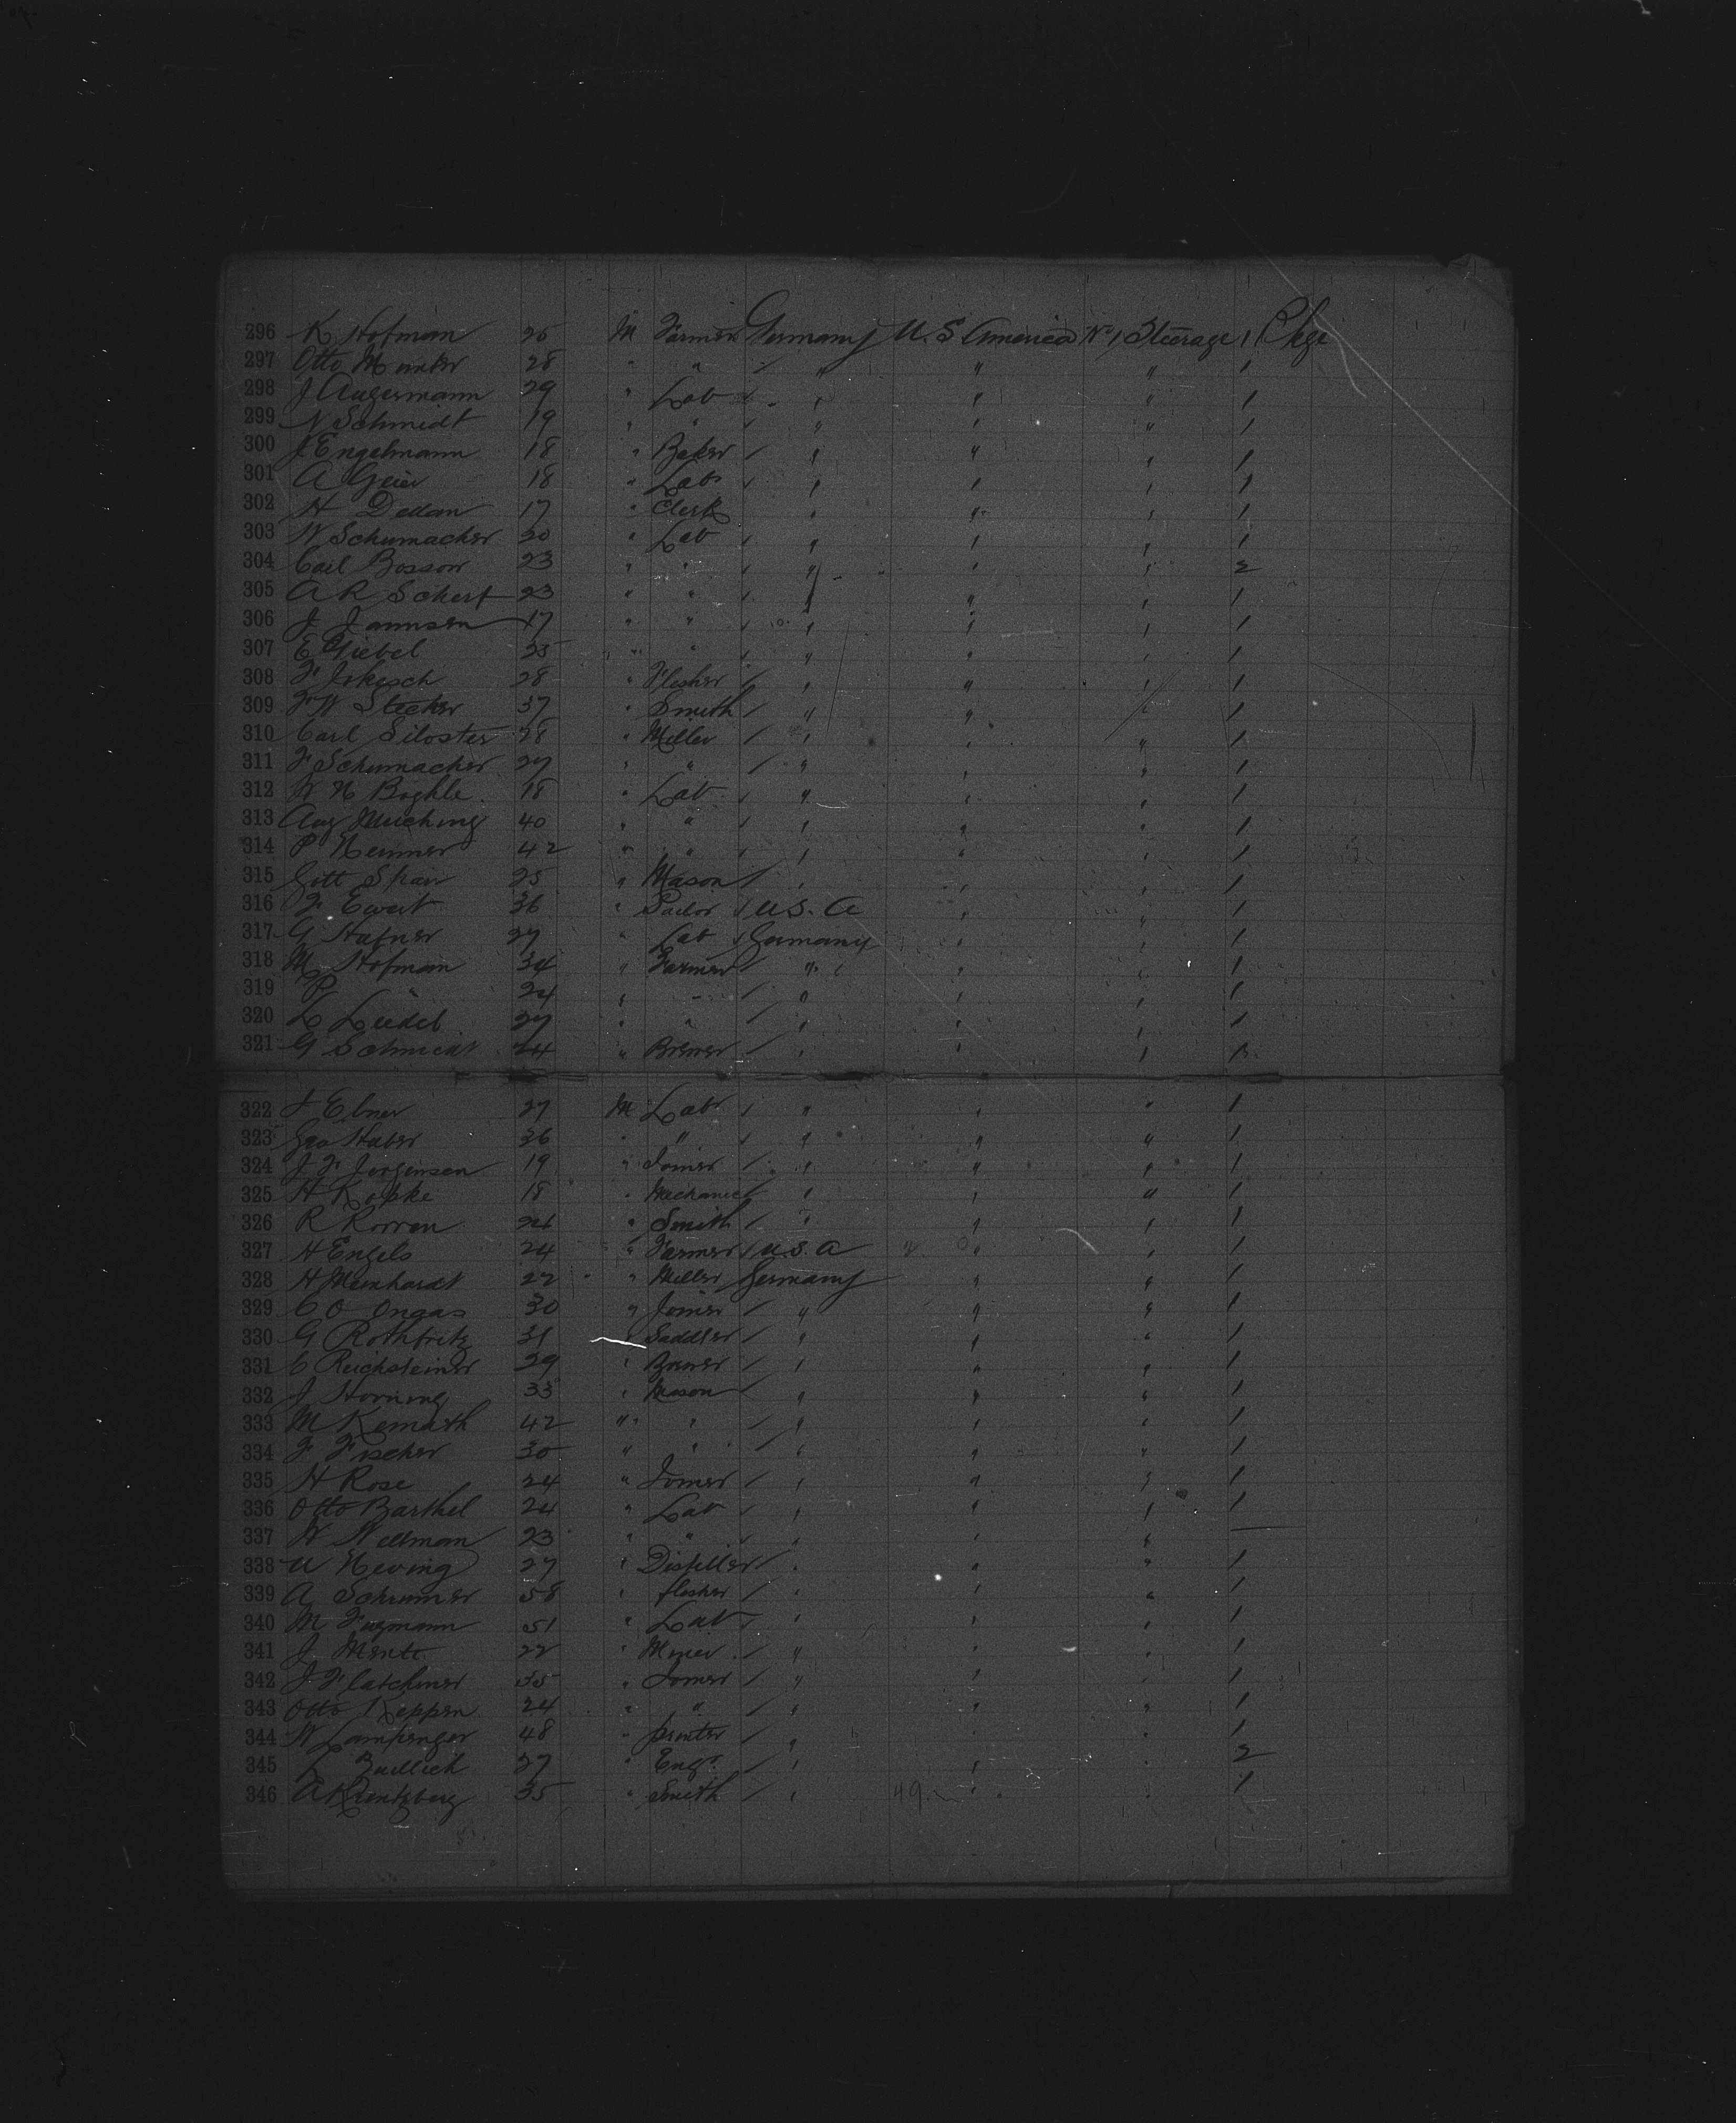 296 K Hofman 25 M Farmer Germany U. S America No 1 Steerage 1 Pkge
297 Otto Munker 28 " " " " " 1
298 J Angermann 29 " Lab " " " 1
299 N Schmidt 19 " " " " " 1
300 J Engelmann 18 " Baker " " " 1
301 A Geier 18 " Labr " " " 1
302 H Dedan 17 " Clerk " " " 1
303 W Schumacher 20 " Lab " " " 1
304 Carl Bossow 23 " " " " " 2
305 A R Schert 23 " " " " " 1
306 J Jannsen 17 " " " " " 1
307 E Giebel 35 " " " " " 1
308 F Jokesch 28 " Flesher " " " 1
309 F W Stecker 37 " Smith " " " 1
310 Carl Siloster 28 " Miller " " " 1
311 F Schumacher 27 " " " " " 1
312 W H Boehle 18 " Lab " " " 1
313 Aug Muching 40 " " " " " 1
314 P Neumer 42 " " " " " 1
315 Gott Span 25 " Mason " " " 1
316 F Ewert 36 " Sailor U.S. A " " 1
317 G Hafner 27 " Lab Germany " " 1
318 M Hofman 34 " Farmer " " " 1
319 P " 24 " " " " " 1
320 L Liedel 27 " " " " " 1
321 G Schmidt 24 " Brewer " " " 1
322 J Ebner 27 M Labr " " " 1
323 Geo Huber 36 " " " " " 1
324 J F Jorgensen 19 " Joiner " " " 1
325 H Kopke 18 " Mechanic " " " 1
326 R Rorren 26 " Smith " " " 1
327 H Engels 24 " Farmer U.S. A " " 1
328 H Meinhardt 22 " Miller Germany " " 1
329 C O Ongas 30 " Joiner " " " 1
330 G Rothfritz 31 " Saddler " " " 1
331 C Reichsteiner 29 " Brewer " " " 1
332 J Horning 33 " Mason " " " 1
333 M Kemath 42 " " " " " 1
334 F Fischer 30 " " " " " 1
335 H Rose 24 " Joiner " " " 1
336 Otto Barthel 24 " Lab " " " 1
337 W Wellman 23 " " " " " —
338 U Neving 27 " Distiller " " " 1
339 A Schrumer 58 " flesher " " " 1
340 M Fugmann 51 " Lab " " " 1
341 J Mente 22 " Miner " " " 1
342 J Flatchner 35 " Joiner " " " 1
343 Otto Keppen 24 " " " " " 1
344 W Lampenger 48 " printer " " " 1
345 L Zudlich 27 " Engr " " " 2
346 A Krentzberg 35 " Smith " " " 1